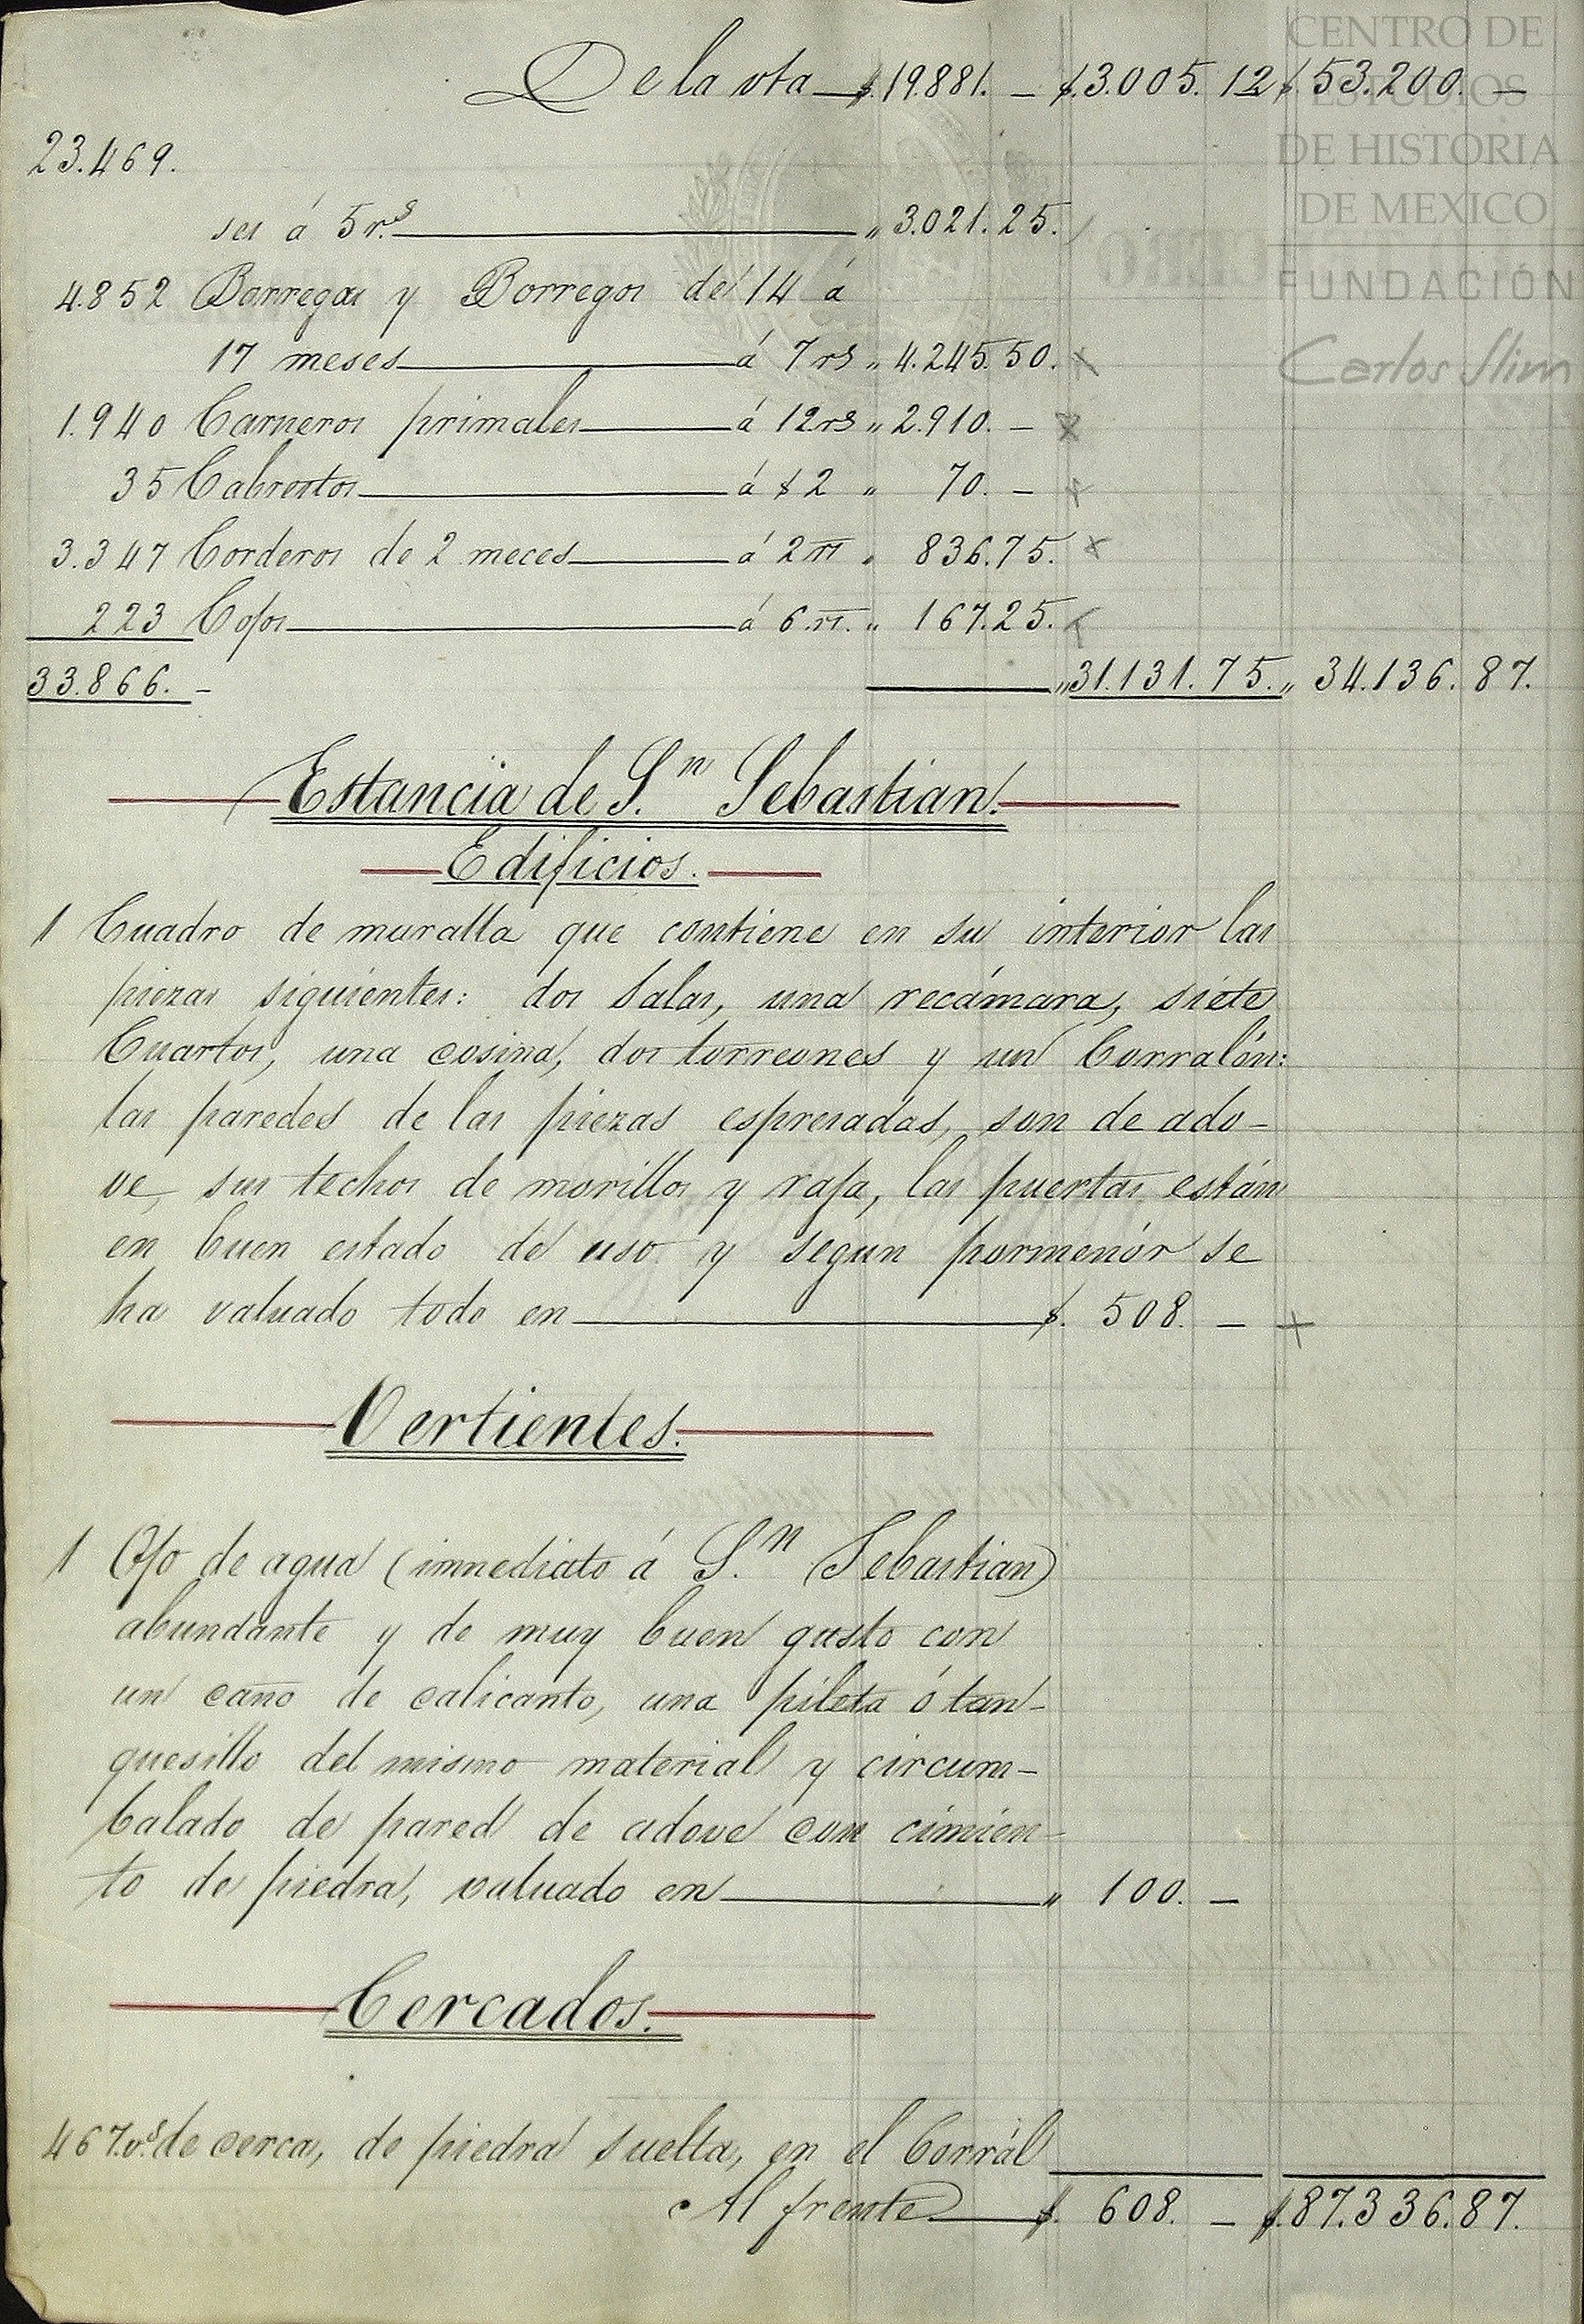 De la vta $.19.881. — $.3.005.12 $.53.200. —
23.469.
ses á 5 r.s „ 3.021.25.
4.852 Borregas y Borregos de 14 á
17 meses á 7 rs „ 4.245.50.
1.940 Carneros primales á 12 rs „ 2.910. —
35 Cabrestos á $2 „ 70. —
3.347 Corderos de 2 meces á 2 rs „ 836.75.
223 Cojos á 6. rs. „ 167.25.
33.866. — „ 31.131.75. „ 34.136.87.
Estancia de S.n Sebastian.
Edificios.
1 Cuadro de muralla que contiene en su interior las
piezas siguientes: dos Salas, una recámara, siete
Cuartos, una cosina, dos torreones y un Corralón:
las paredes de las piezas espresadas, son de ado-
ve, sus techos de morillos y rafa, las puertas están
en buen estado de uso y segun pormenór se
ha valuado todo en $. 508. —
Vertientes.
1 Ojo de agua (inmediato á S.n Sebastian)
abundante y de muy buen gusto con
un caño de calicanto, una pileta ó tan-
quesillo del mismo material y circum-
balado de pared de adove con cimien-
to de piedra, valuado en „ 100. —
Cercados.
467. v.s de cerca, de piedra suelta, en el Corrál
Al frente $. 608. — $.87.336.87.
CENTRO DE
ESTUDIOS
DE HISTORIA
DE MEXICO
FUNDACIÓN
Carlos Slim